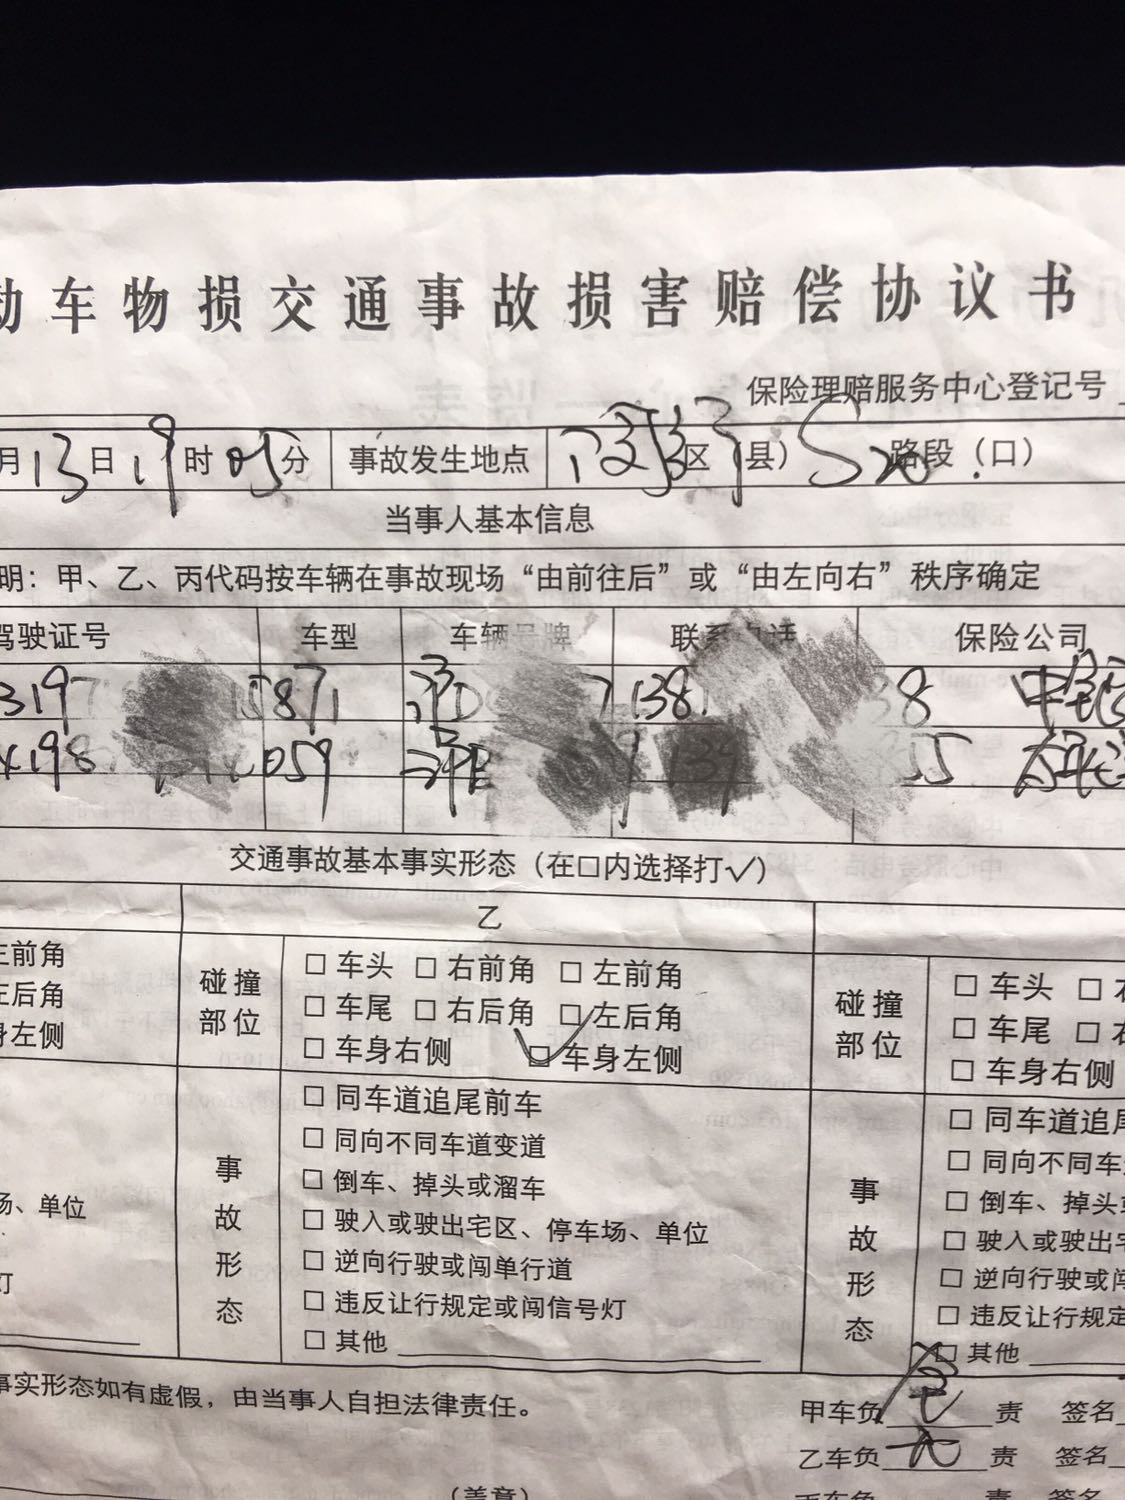 动车物损交通事故损害赔偿协议书
保险理赔服务中心登记号
月13日19时05分 事故发生地点 区 县) S20 路段(口)
当事人基本信息
明:甲、乙、丙代码按车辆在事故现场“由前往后”或“由左向右”秩序确定
驾驶证号 车型 车辆号牌 联系电话 保险公司
3197 5871 沪D 7 138 38
198 059 沪E 139 55
交通事故基本事实形态(在□内选择打√)
乙
左前角
左后角
身左侧
碰撞部位
□ 车头 □ 右前角 □ 左前角
□ 车尾 □ 右后角 □ 左后角
□ 车身右侧 ☑ 车身左侧
碰撞部位
□ 车头 □ 右
□ 车尾 □ 右
□ 车身右侧
场、单位
灯
事故形态
□ 同车道追尾前车
□ 同向不同车道变道
□ 倒车、掉头或溜车
□ 驶入或驶出宅区、停车场、单位
□ 逆向行驶或闯单行道
□ 违反让行规定或闯信号灯
□ 其他
事故形态
□ 同车道追尾
□ 同向不同车
□ 倒车、掉头或
□ 驶入或驶出宅
□ 逆向行驶或闯
□ 违反让行规定
□ 其他
事实形态如有虚假,由当事人自担法律责任。
甲车负 全 责 签名
乙车负 无 责 签名
丙车负 责 签名
(盖章)